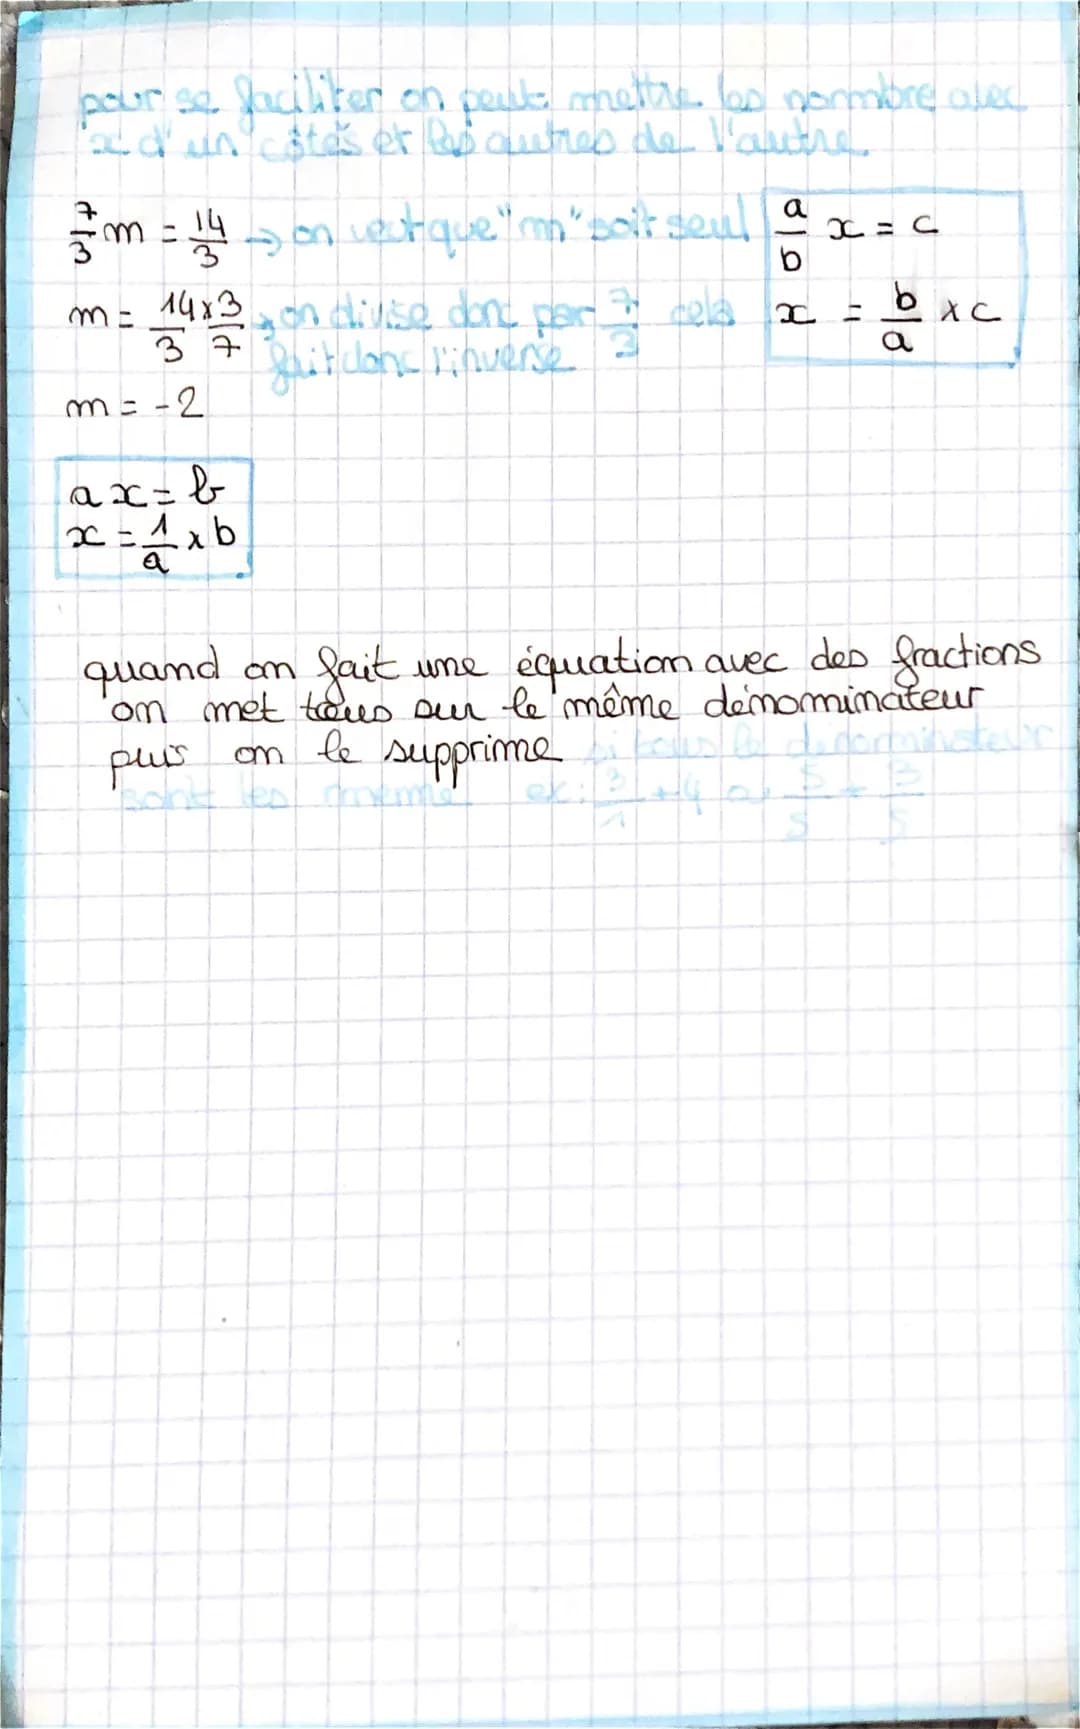 pour se faciliter on peut mettre les nombre avec
x d'un côtés et les autres de l'autre.
7/3 m = 14/3 → on veut que "m" soit seul
m = 14/3 x 3/7 → on divise donc par 7/3 cela
fait donc l'inverse
m = -2
a/b x = c
x = b/a x c
a x = b
x = 1/a x b
quand on fait une équation avec des fractions
on met tous sur le même dénominateur
puis on le supprime si tous le dénominateur
sont les meme ex: 3/1 + 4 a 5/5 + 3/5